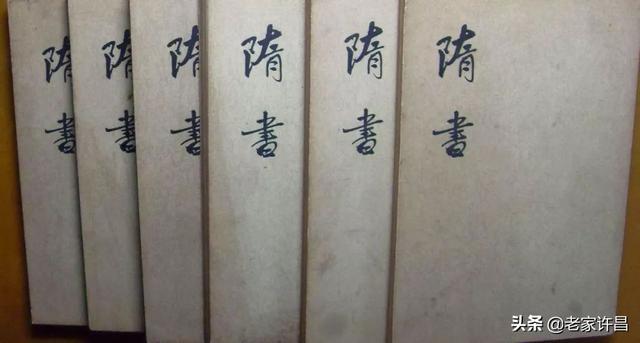 隋書
隋書
隋書
隋書
隋書
隋書
头条 @老家许昌